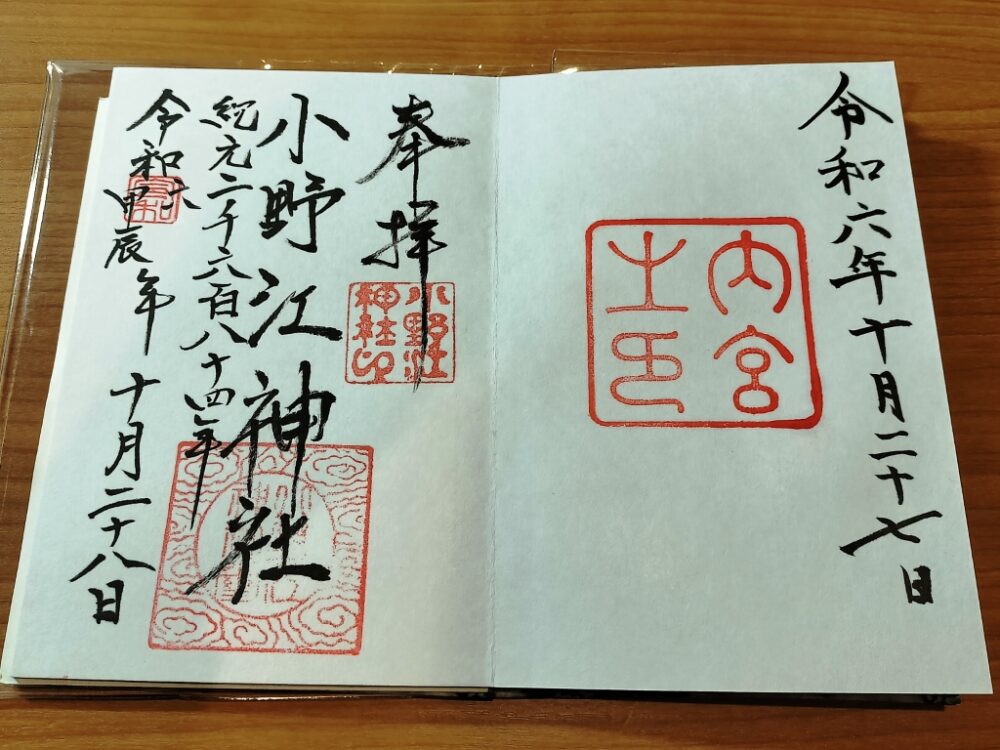 令和六年十月二十七日
内宮
之印
奉拝
小野江
神社印
小野江神社
紀元二千六百八十四年
令和六甲辰年 十月二十八日